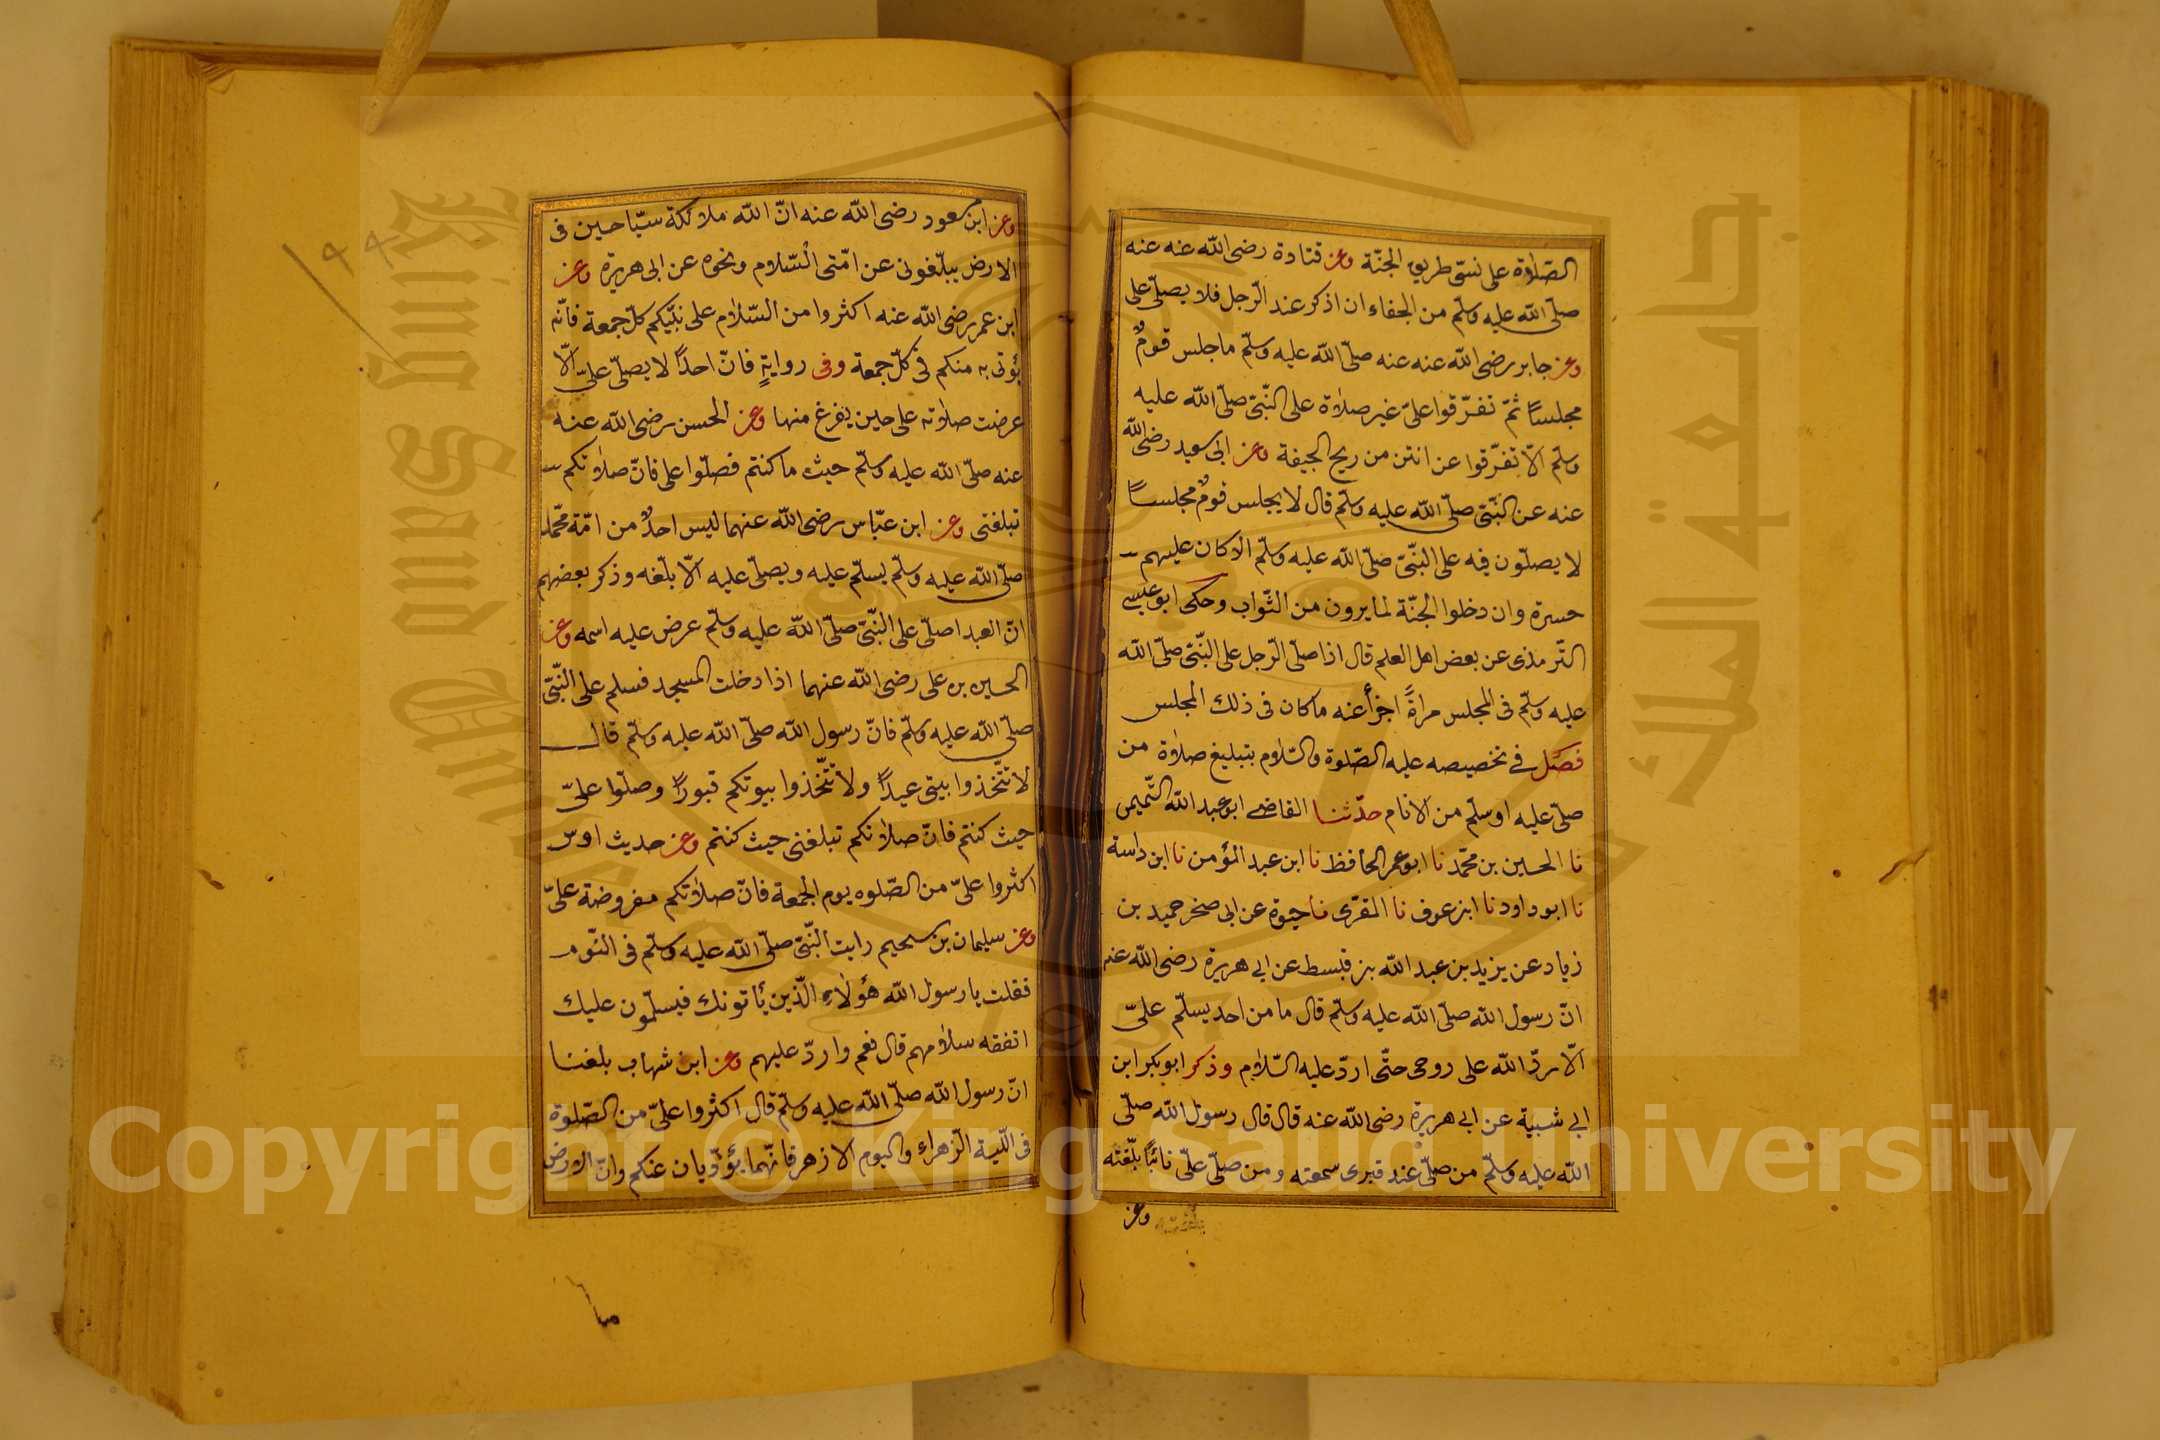 الصّلاة على نسى طريق الجنّة وعن قتادة رضى الله عنه عنه
صلّى الله عليه وسلّم من الجفاء ان اذكر عند الرّجل فلا يصلّى علىّ
وعن جابر رضى الله عنه عنه صلّى الله عليه وسلّم ما جلس قومٌ
مجلسًا ثمّ تفرّقوا علىّ غير صلاة على النّبىّ صلّى الله عليه
وسلّم الّا تفرّقوا عن انتن من ريح الجيفة وعن ابى سعيد رضى الله
عنه عن النّبىّ صلّى الله عليه وسلّم قال لا يجلس قومٌ مجلسًا
لا يصلّون فيه على النّبىّ صلّى الله عليه وسلّم الّا كان عليهم
حسرة وان دخلوا الجنّة لما يرون من الثّواب وحكى ابو عيسى
التّرمذى عن بعض اهل العلم قال اذا صلّى الرّجل على النّبىّ صلّى الله
عليه وسلّم فى المجلس مرّةً اجزأ عنه ما كان فى ذلك المجلس
فصل فى تخصيصه عليه الصّلوة والسّلام بتبليغ صلاة من
صلّى عليه او سلّم من الانام حدّثنا القاضى ابو عبد الله التّميمى
نا الحسين بن محمّد نا ابو عمر الحافظ نا ابن عبد المؤمن نا ابن داسة
نا ابو داود نا ابن عوف نا المقرى نا حيوة عن ابى صخر حميد بن
زياد عن يزيد بن عبد الله بن قسط عن ابى هريرة رضى الله عنه
انّ رسول الله صلّى الله عليه وسلّم قال ما من احد يسلّم علىّ
الّا ردّ الله على روحى حتّى اردّ عليه السّلام وذكر ابو بكر ابن
ابى شيبة عن ابى هريرة رضى الله عنه قال قال رسول الله صلّى
الله عليه وسلّم من صلّى عند قبرى سمعته ومن صلّى علىّ نائبًا بلّغته
وعن
وعن ابن مسعود رضى الله عنه انّ الله ملائكة سيّاحين فى
الارض يبلّغونى عن امّتى السّلام ونحوه عن ابى هريرة وعن
ابن عمر رضى الله عنه اكثروا من السّلام على نبيّكم كلّ جمعة فانّه
يؤتى به منكم فى كلّ جمعة وفى روايةٍ فانّ احدًا لا يصلّى علىّ الّا
عرضت صلاته علىّ حين يفرغ منها وعن الحسن رضى الله عنه
عنه صلّى الله عليه وسلّم حيث ما كنتم فصلّوا علىّ فانّ صلاتكم
تبلغنى وعن ابن عبّاس رضى الله عنهما ليس احدٌ من امّة محمّد
صلّى الله عليه وسلّم يسلّم عليه ويصلّى عليه الّا بلّغه وذكر بعضهم
انّ العبد اصلّى على النّبىّ صلّى الله عليه وسلّم عرض عليه اسمه وعن
الحسين بن على رضى الله عنهما اذا دخلت المسجد فسلم على النّبىّ
صلّى الله عليه وسلّم فانّ رسول الله صلّى الله عليه وسلّم قال
لا تتّخذوا بيتى عيدًا ولا تتّخذوا بيوتكم قبورًا وصلّوا علىّ
حيث كنتم فانّ صلاتكم تبلغنى حيث كنتم وعن حديث اوس
اكثروا علىّ من الصّلوه يوم الجمعة فانّ صلاتكم مفروضة علىّ
وعن سليمان بن سحيم رايت النّبىّ صلّى الله عليه وسلّم فى النّوم
فقلت يا رسول الله هؤلاء الّذين يأتونك فيسلّمون عليك
اتفقه سلامهم قال نعم واردّ عليهم وعن ابن شهاب بلغنا
انّ رسول الله صلّى الله عليه وسلّم قال اكثروا علىّ من الصّلوة
فى اللّيلة الزّهراء واليوم الازهر فانّهما يؤدّيان عنكم وانّ الارض
١٩٩
جامعة الملك
King Saud
Copyright © King Saud University